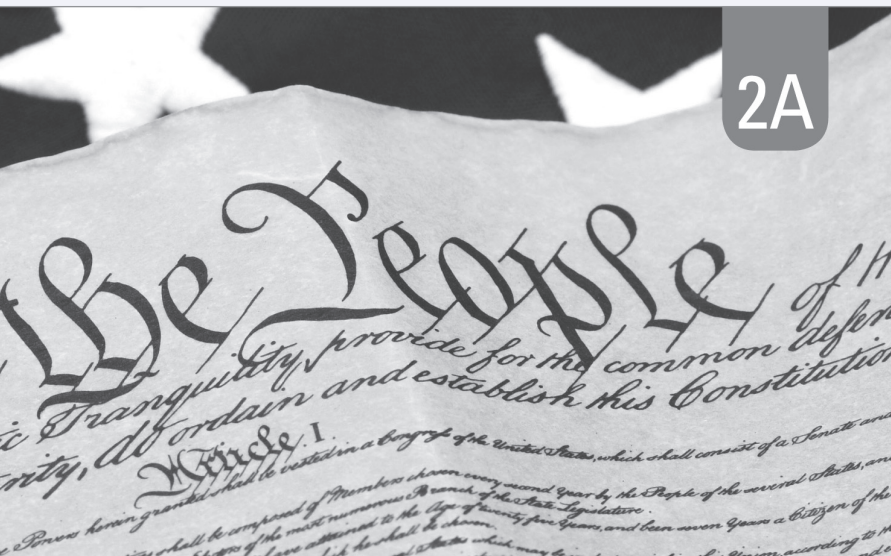 2A
the People of th
ic Tranquility, provide for the common defen
rity, do ordain and establish this Constitution
Article I.
Powers herein granted shall be vested in a Congress of the United States, which shall consist of a Senate and
shall be composed of Members chosen every second Year by the People of the several States, and
of the most numerous Branch of the State Legislature.
have attained to the Age of twenty five Years, and been seven Years a Citizen of the
he shall be chosen.
States which may be according to th